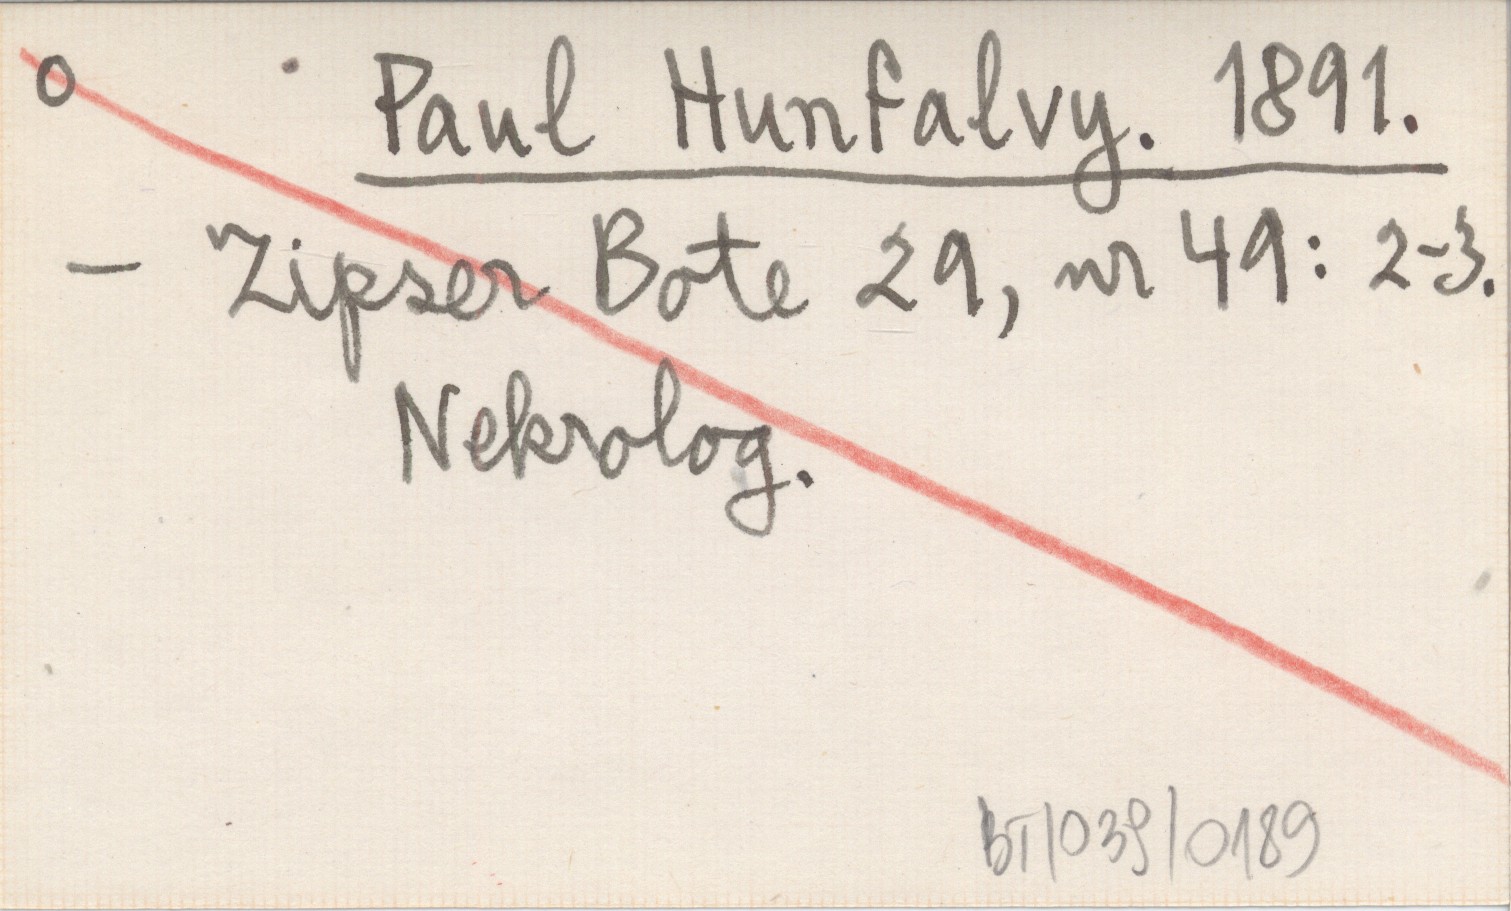 o Paul Hunfalvy. 1891.
— Zipser Bote 29, nr 49: 2-3.
Nekrolog.
BT/039/0189